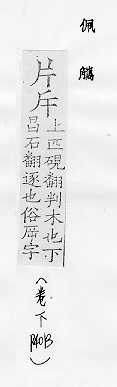 佩
觿
片斥
上匹硯翻判木也下
昌石翻逐也俗㡿字
(卷下P40B)